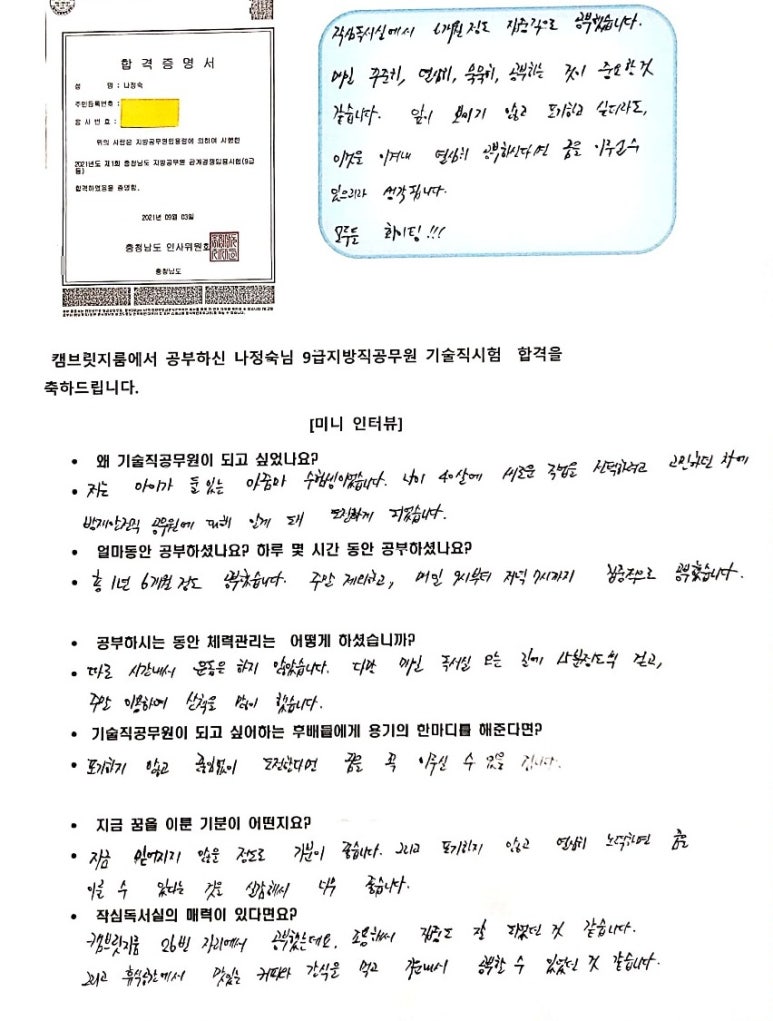 합격증명서
성 명 : 나정숙
주민등록번호 :
응시번호 :
위의 사람은 지방공무원임용령에 의하여 시행한
2021년도 제1회 충청남도 지방공무원 공개경쟁임용시험(9급
등)
합격하였음을 증명함.
2021년 09월 03일
충청남도 인사위원회
충청남도
작심독서실에서 6개월 정도 집중적으로 공부했습니다.
매일 꾸준히, 열심히, 묵묵히, 공부하는 것이 중요한 것
같습니다. 앞이 보이지 않고 포기하고 싶더라도,
이것을 이겨내 열심히 공부하신다면 꿈을 이루실 수
있으리라 생각됩니다.
모두들 화이팅!!!
캠브릿지룸에서 공부하신 나정숙님 9급지방직공무원 기술직시험 합격을
축하드립니다.
[미니 인터뷰]
• 왜 기술직공무원이 되고 싶었나요?
• 저는 아이가 둘 있는 아줌마 수험생이었습니다. 나이 40살에 새로운 직업을 선택하려고 고민하던 차에
방재안전직 공무원에 대해 알게 돼 도전하게 되었습니다.
• 얼마동안 공부하셨나요? 하루 몇 시간 동안 공부하셨나요?
• 총 1년 6개월 정도 공부했습니다. 주말 제외하고, 매일 9시부터 저녁 7시까지 집중적으로 공부했습니다.
• 공부하시는 동안 체력관리는 어떻게 하셨습니까?
• 따로 시간내서 운동은 하지 않았습니다. 다만 매일 독서실 오는 길에 15분정도씩 걷고,
주말 이용하여 산책을 많이 했습니다.
• 기술직공무원이 되고 싶어하는 후배들에게 용기의 한마디를 해준다면?
• 포기하지 않고 끊임없이 도전한다면 꿈을 꼭 이루실 수 있을 겁니다.
• 지금 꿈을 이룬 기분이 어떤지요?
• 지금 믿어지지 않을 정도로 기분이 좋습니다. 그리고 포기하지 않고 열심히 노력하면 꿈을
이룰 수 있다는 것을 실감해서 더욱 좋습니다.
• 작심독서실의 매력이 있다면요?
캠브릿지룸 26번 자리에서 공부했는데요, 조용해서 집중도 잘 되었던 것 같습니다.
그리고 휴식공간에서 맛있는 커피와 간식을 먹고 힘내서 공부할 수 있었던 것 같습니다.